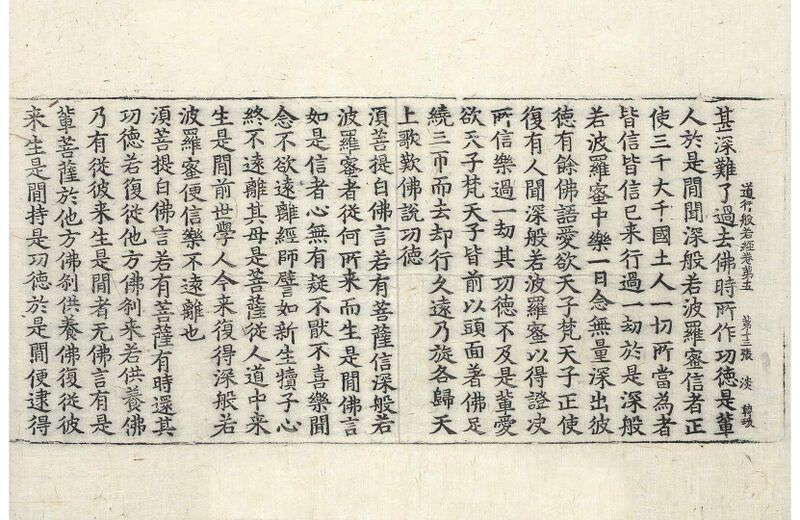 道行般若經卷第五 第十三張 淡
甚深難了過去佛時所作功德是輩
人於是間聞深般若波羅蜜信者正
使三千大千國土人一切所當為者
皆信皆信已來行過一劫於是深般
若波羅蜜中樂一日念無量深出彼
德有餘佛語愛欲天子梵天子正使
復有人聞深般若波羅蜜以得證次
所信樂過一劫其功德不及是輩愛
欲天子梵天子皆前以頭面著佛足
繞三帀而去却行久遠乃旋各歸天
上歌歎佛說功德
須菩提白佛言若有菩薩信深般若
波羅蜜者從何所來而生是間佛言
如是信者心無有疑不猒不喜樂聞
念不欲遠離經師譬如新生犢子心
終不遠離其母是菩薩從人道中來
生是間前世學人今來復得深般若
波羅蜜便信樂不遠離也
須菩提白佛言若有菩薩有時還其
功德若復從他方佛刹来若供養佛
乃有從彼来生是間者无佛言有是
輩菩薩於他方佛刹供養佛復從彼
来生是間持是功德於是間便逮得